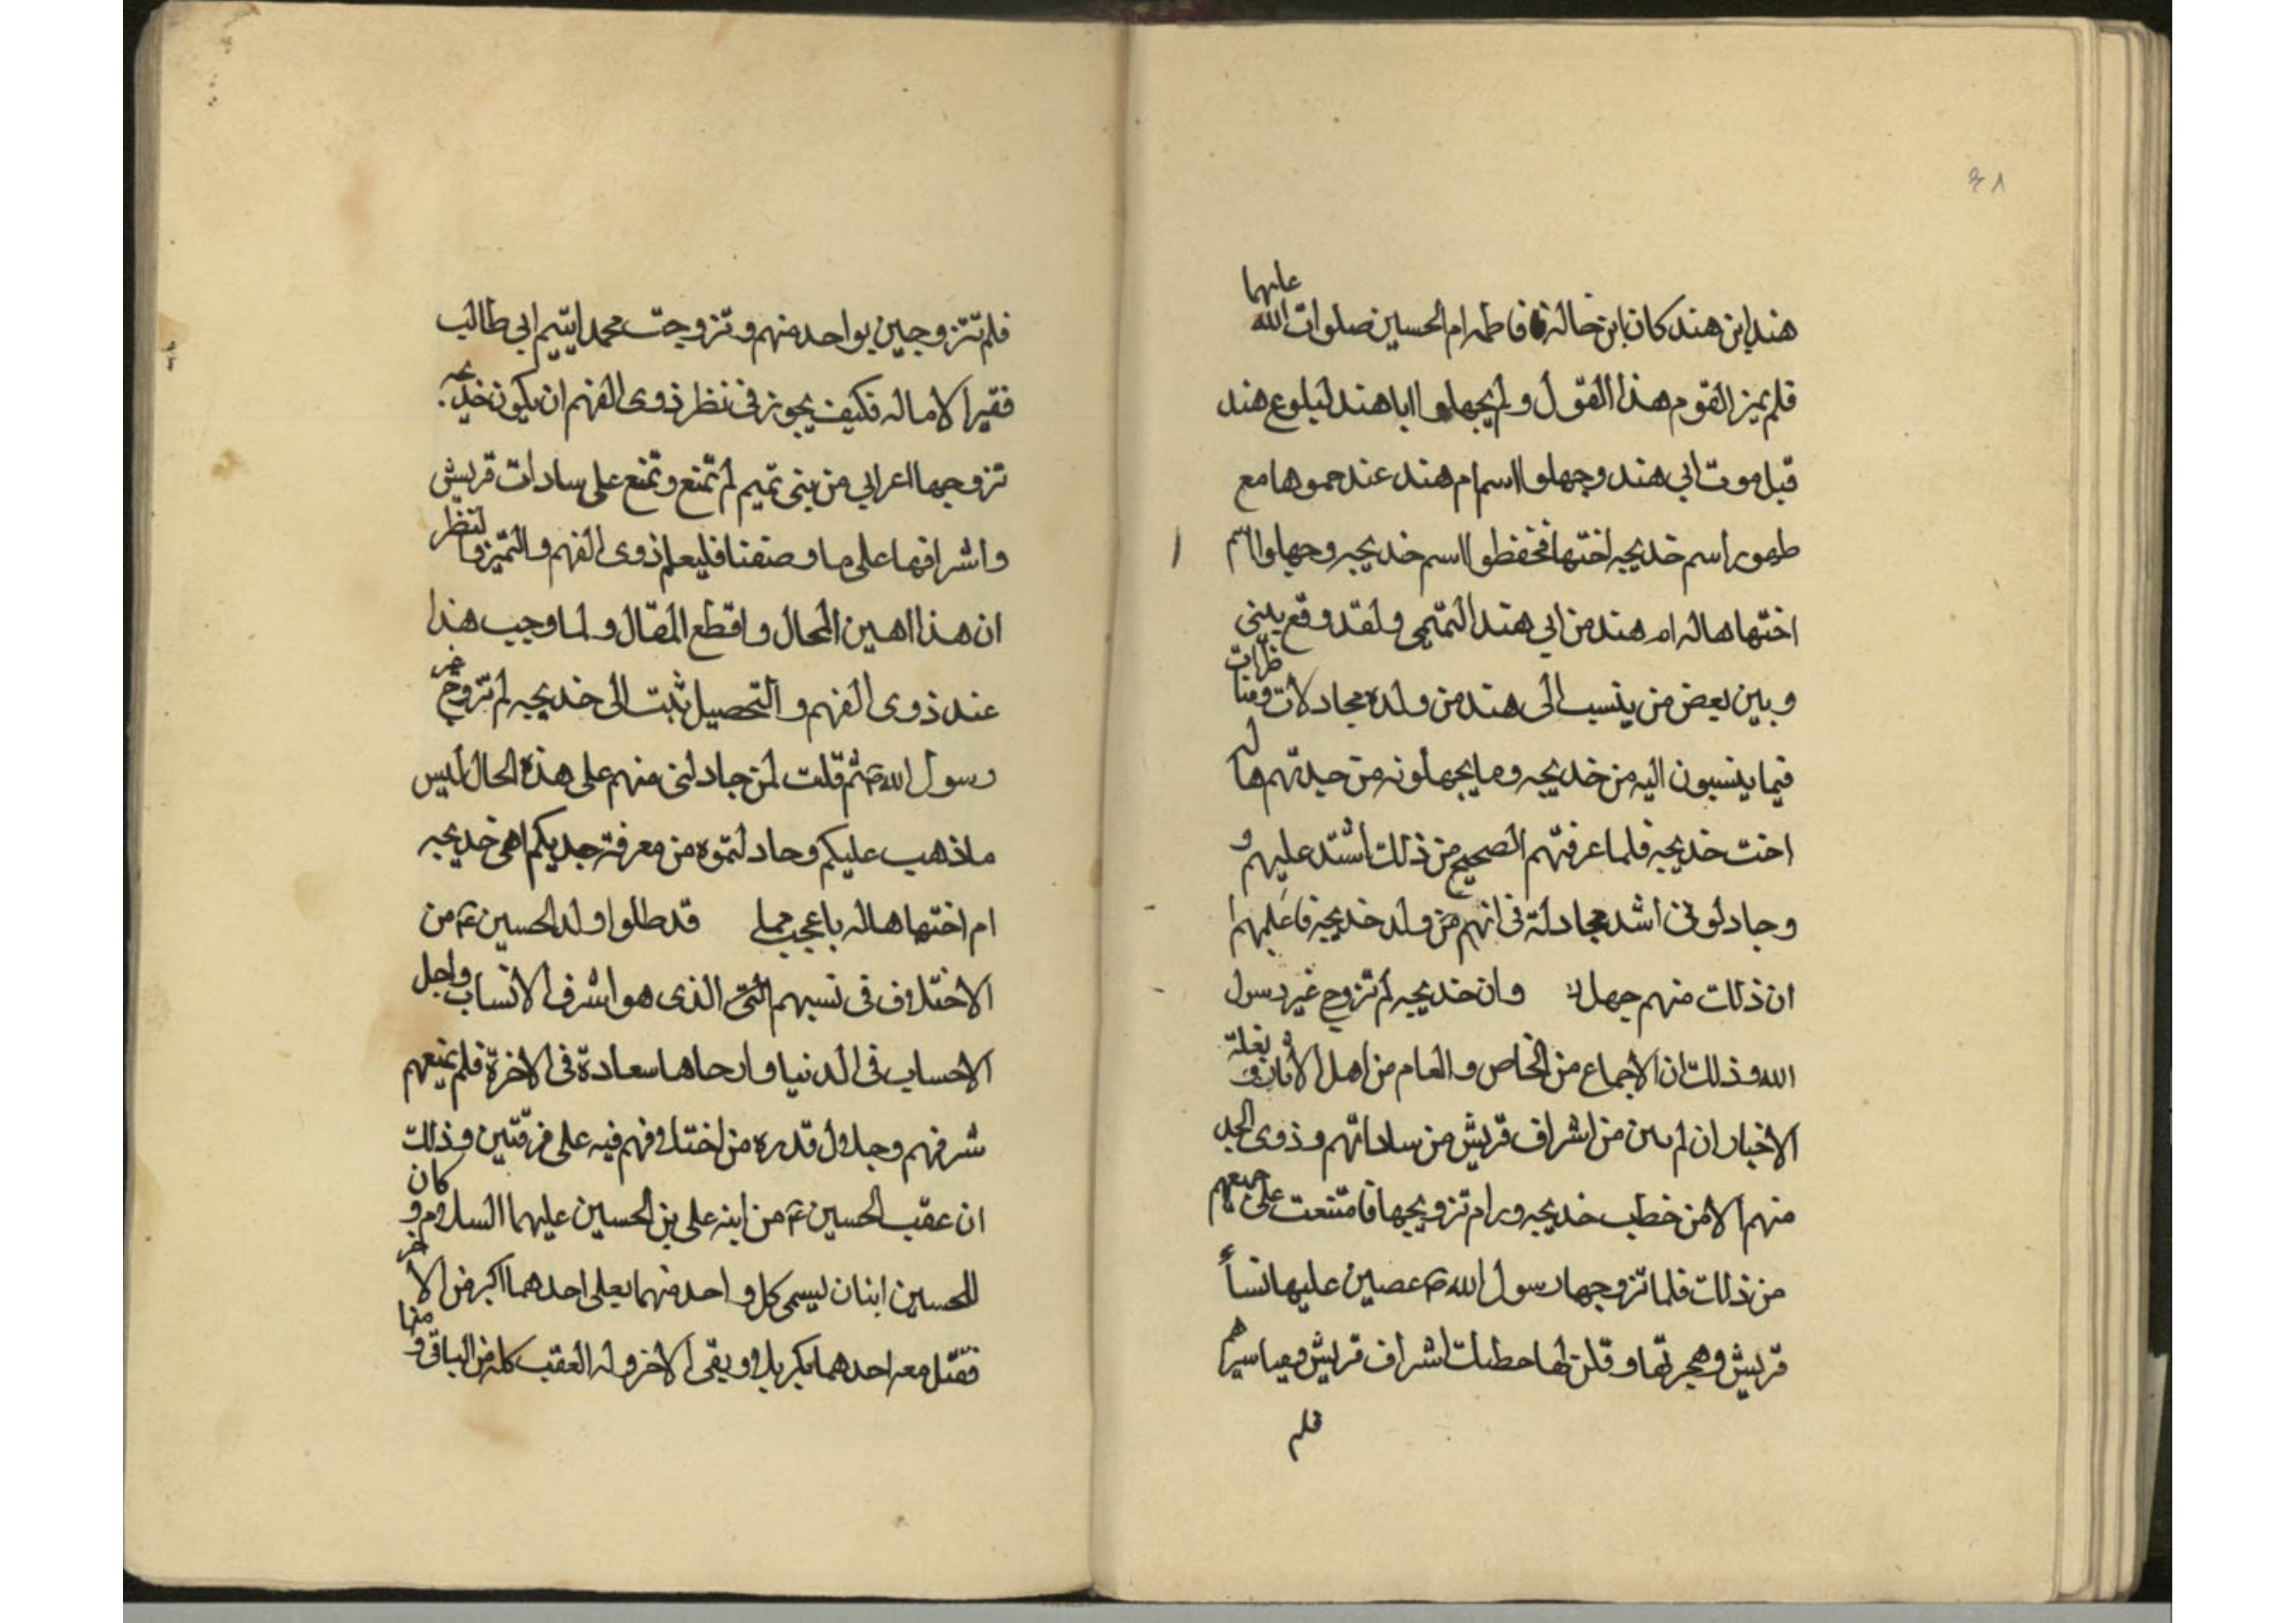 ٣٨
هند ابن هند كان ابن خالة فاطمه ام الحسين صلوات الله عليهما
فلم يميز القوم هذا القول ولم يجهلوا ابا هند لبلوغ هند
قبل موت ابي هند وجهلوا اسم ام هند عند حموها مع
ظهور اسم خديجه اختها فحفظوا اسم خديجه وجهلوا اسم
اختها هاله ام هند من ابي هند التميمى ولقد وقع بينى
و بين بعض من ينسب الى هند من ولده مجادلات ومناظرات
فيما ينسبون اليه من خديجه وما يجهلونه من جدتهم هاله
اخت خديجه فلما عرفتهم الصحيح من ذلك اشتد عليهم و
وجادلونى اشد مجادلة فى انهم من ولد خديجة فاعلمهم
ان ذلك منهم جهل وان خديجه لم تزوج غير رسول
الله وذلك ان الاجماع من الخاص والعام من اهل ونقلة
الاخبار ان لم من اشراف قريش من ساداتهم وذوى
منهم الا من خطب خديجه ورام تزويجها فامتنعت على جميعهم
من ذلك فلما تزوجها رسول الله ص عليها نسأ
قريش وهجرتها وقلن لها اشراف قريش
فلم
فلم تتزوجين بواحد منهم وتزوجت محمدا يتيم ابي طالب
فقيرا لا ماله فكيف يجوز فى نظر ذوى الفهم ان يكون خديجه
تزوجها اعرابي من بنى تميم لم تمنع وتمنع على سادات قريش
واشرافها على ما وصفنا فليعلم ذوى الفهم والتميز والنظر
ان هذا اهين المحال واقطع المقال ولما وجب هذا
عند ذوى الفهم والتحصيل ثبت الى خديجه لم تزوج غير
رسول الله ص ثم قلت لمن جادلنى منهم على هذه الحال ليس
ما ذهب عليكم وجادلتموه من معرفة جديكم اهى خديجه
ام اختها هاله باعجب مما قد ولد الحسين ع من
الاختلاف فى نسبهم الذى هو اشرف الانساب واجل
الاحساب فى الدنيا وارجاها سعادة فى الاخرة فلم يمنعهم
شرفهم وجلال قدره من اختلافهم فيه على فرقتين وذلك
ان عقب الحسين ع من ابنه على بن الحسين عليهما السلام وكان
للحسين ابنان ليسمى كل واحد منهما بعلى احدهما اكبر من الاخر
فقتل معه احدهما بكربلا وبقى الاخر وله العقب كله من الباقى و منها